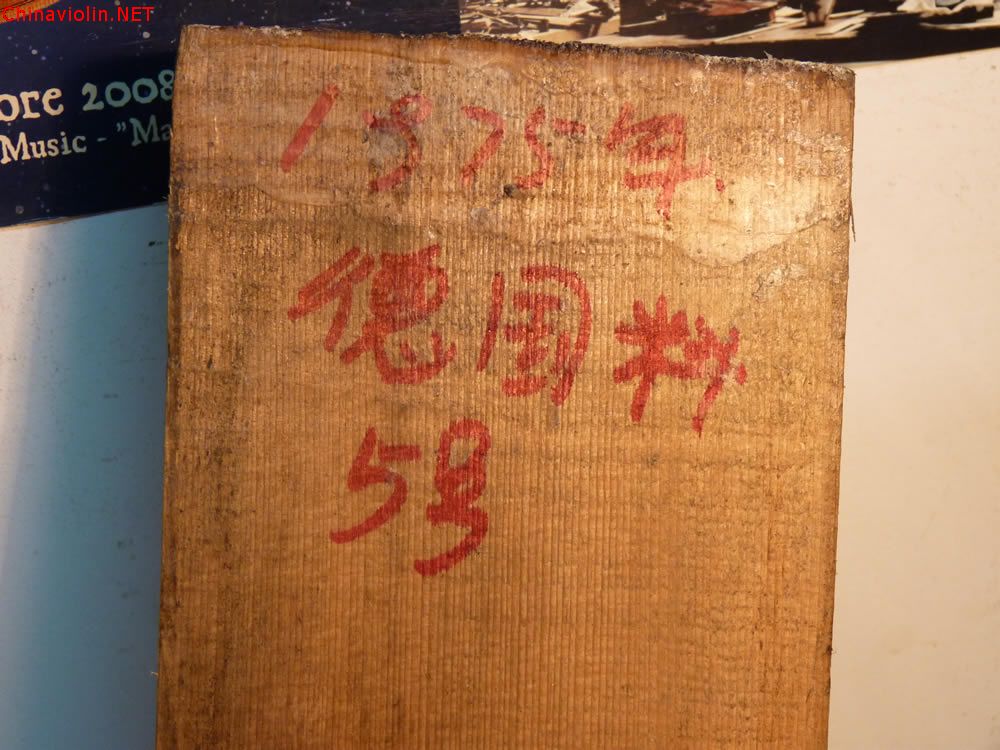 Chinaviolin.NET
ore 2008
Music - "Ma
1975年
德国料
5号